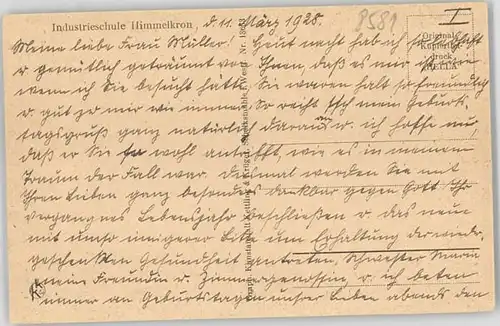 Industrieschule Himmelkron, d. 11. März 1928.
8581
I
Original-
Kupfertief-
druck
Meine liebe Frau Müller! Heut nacht hab ich so
u. gemütlich geträumt von Ihnen, daß es mir
wenn ich Sie besucht hätte. Sie waren halt so freundlich
u. gut zu mir wie immer. So reicht sich mein Geburts-
tagsgruß ganz natürlich daran u. ich hoffe nur,
daß er Sie so wohl antrifft, wie es in meinem
Traum der Fall war. Diesmal werden Sie mit
Ihren Lieben ganz besonders dankbar gegen Gott Ihr
vergangnes Lebensjahr beschließen u. das neue
mit umso innigerer Bitte um Erhaltung der wieder-
geschenkten Gesundheit antreten. Schwester Maria
meine Freundin u. Zimmergenossin u. ich beten
immer an Geburtstagen unsrer Lieben abends den